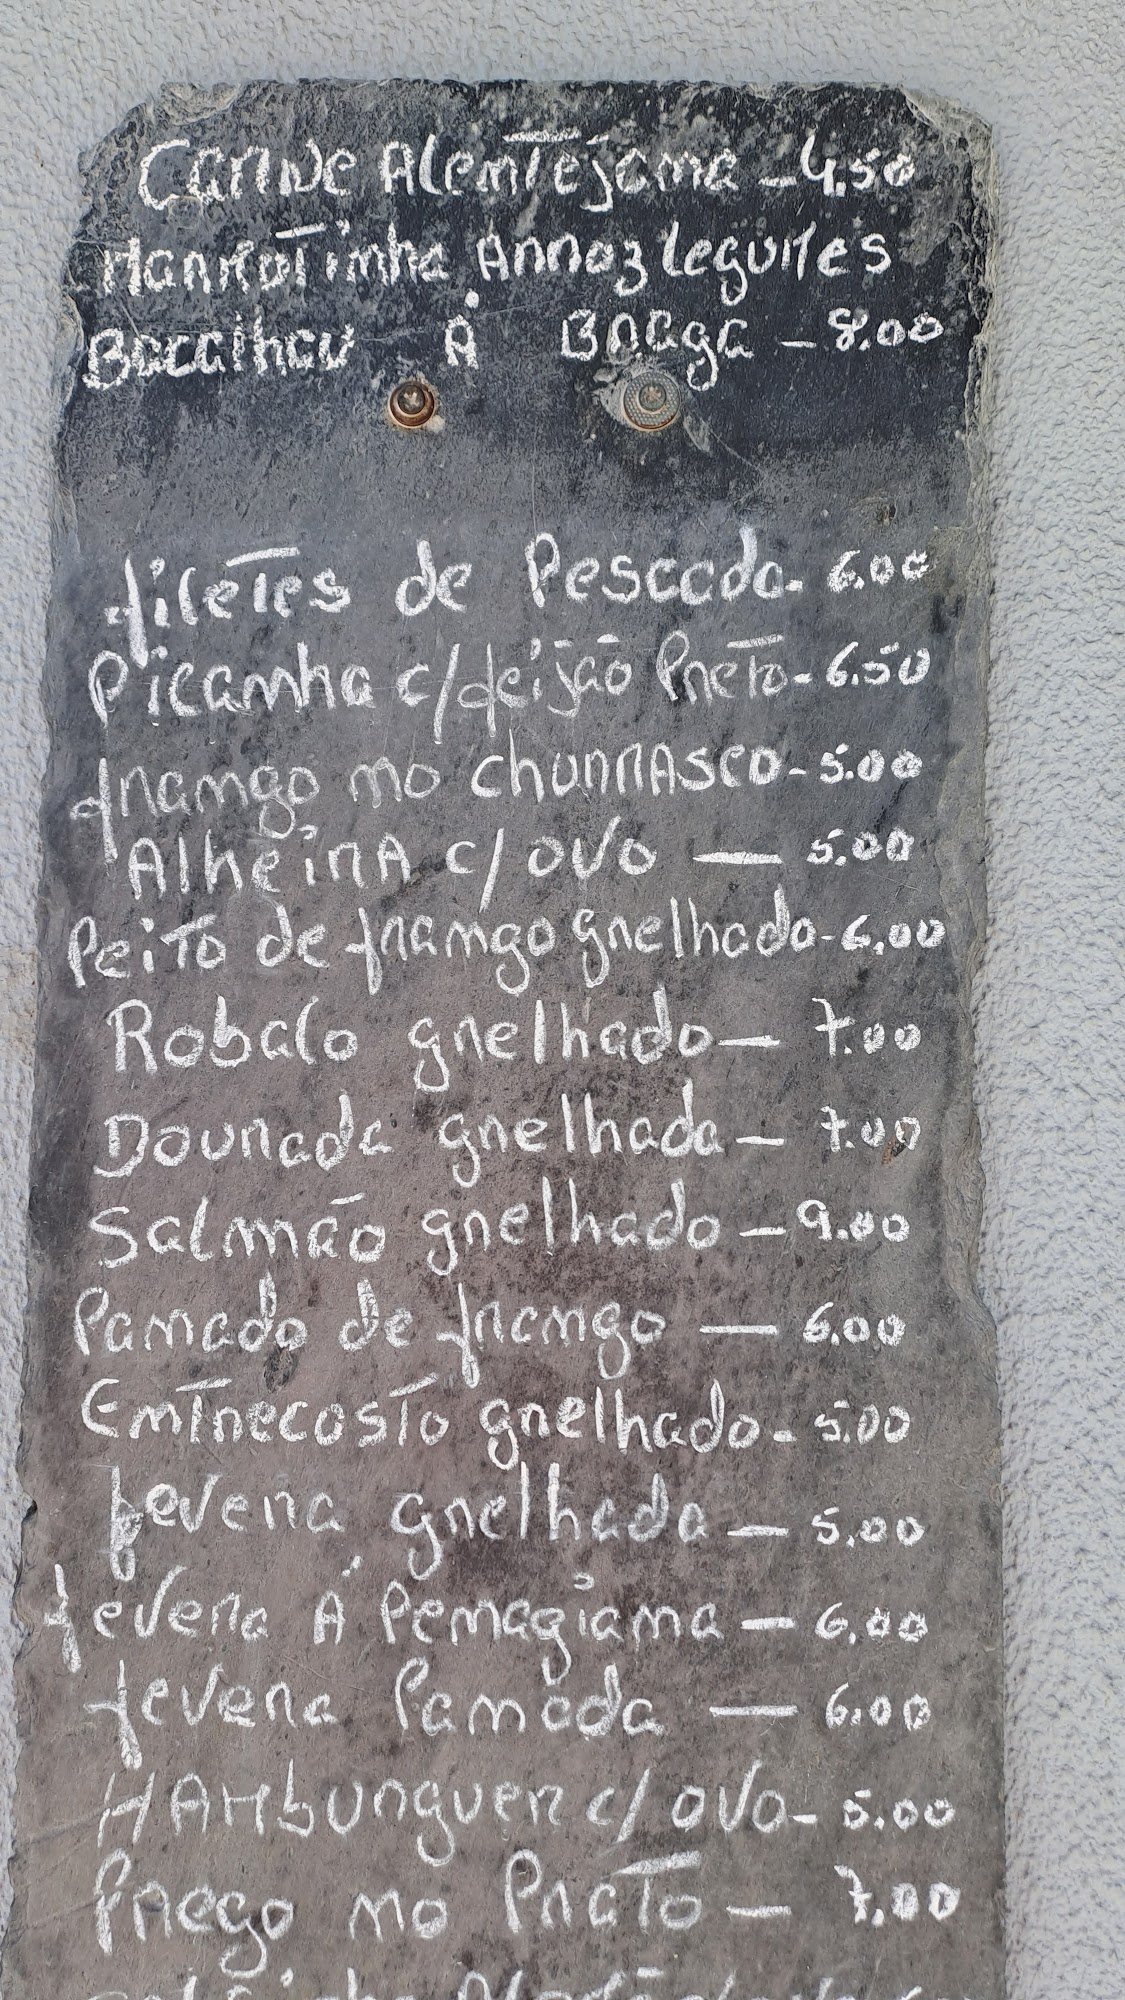 Carne Alentejana - 4.50
Marmotinha Arroz Legumes
Bacalhau Á Braga - 8.00
filetes de Pescada - 6.00
Picanha c/feijão Preto - 6.50
frango no churrasco - 5.00
Alheira c/ ovo — 5.00
Peito de frango grelhado - 6.00
Robalo grelhado — 7.00
Dourada grelhada — 7.00
Salmão grelhado — 9.00
Panado de frango — 6.00
Entrecosto grelhado - 5.00
fevera grelhada — 5.00
fevera Á Pemagiana — 6.00
fevera Panada — 6.00
Hamburguer c/ ovo - 5.00
Prego no Prato — 7.00